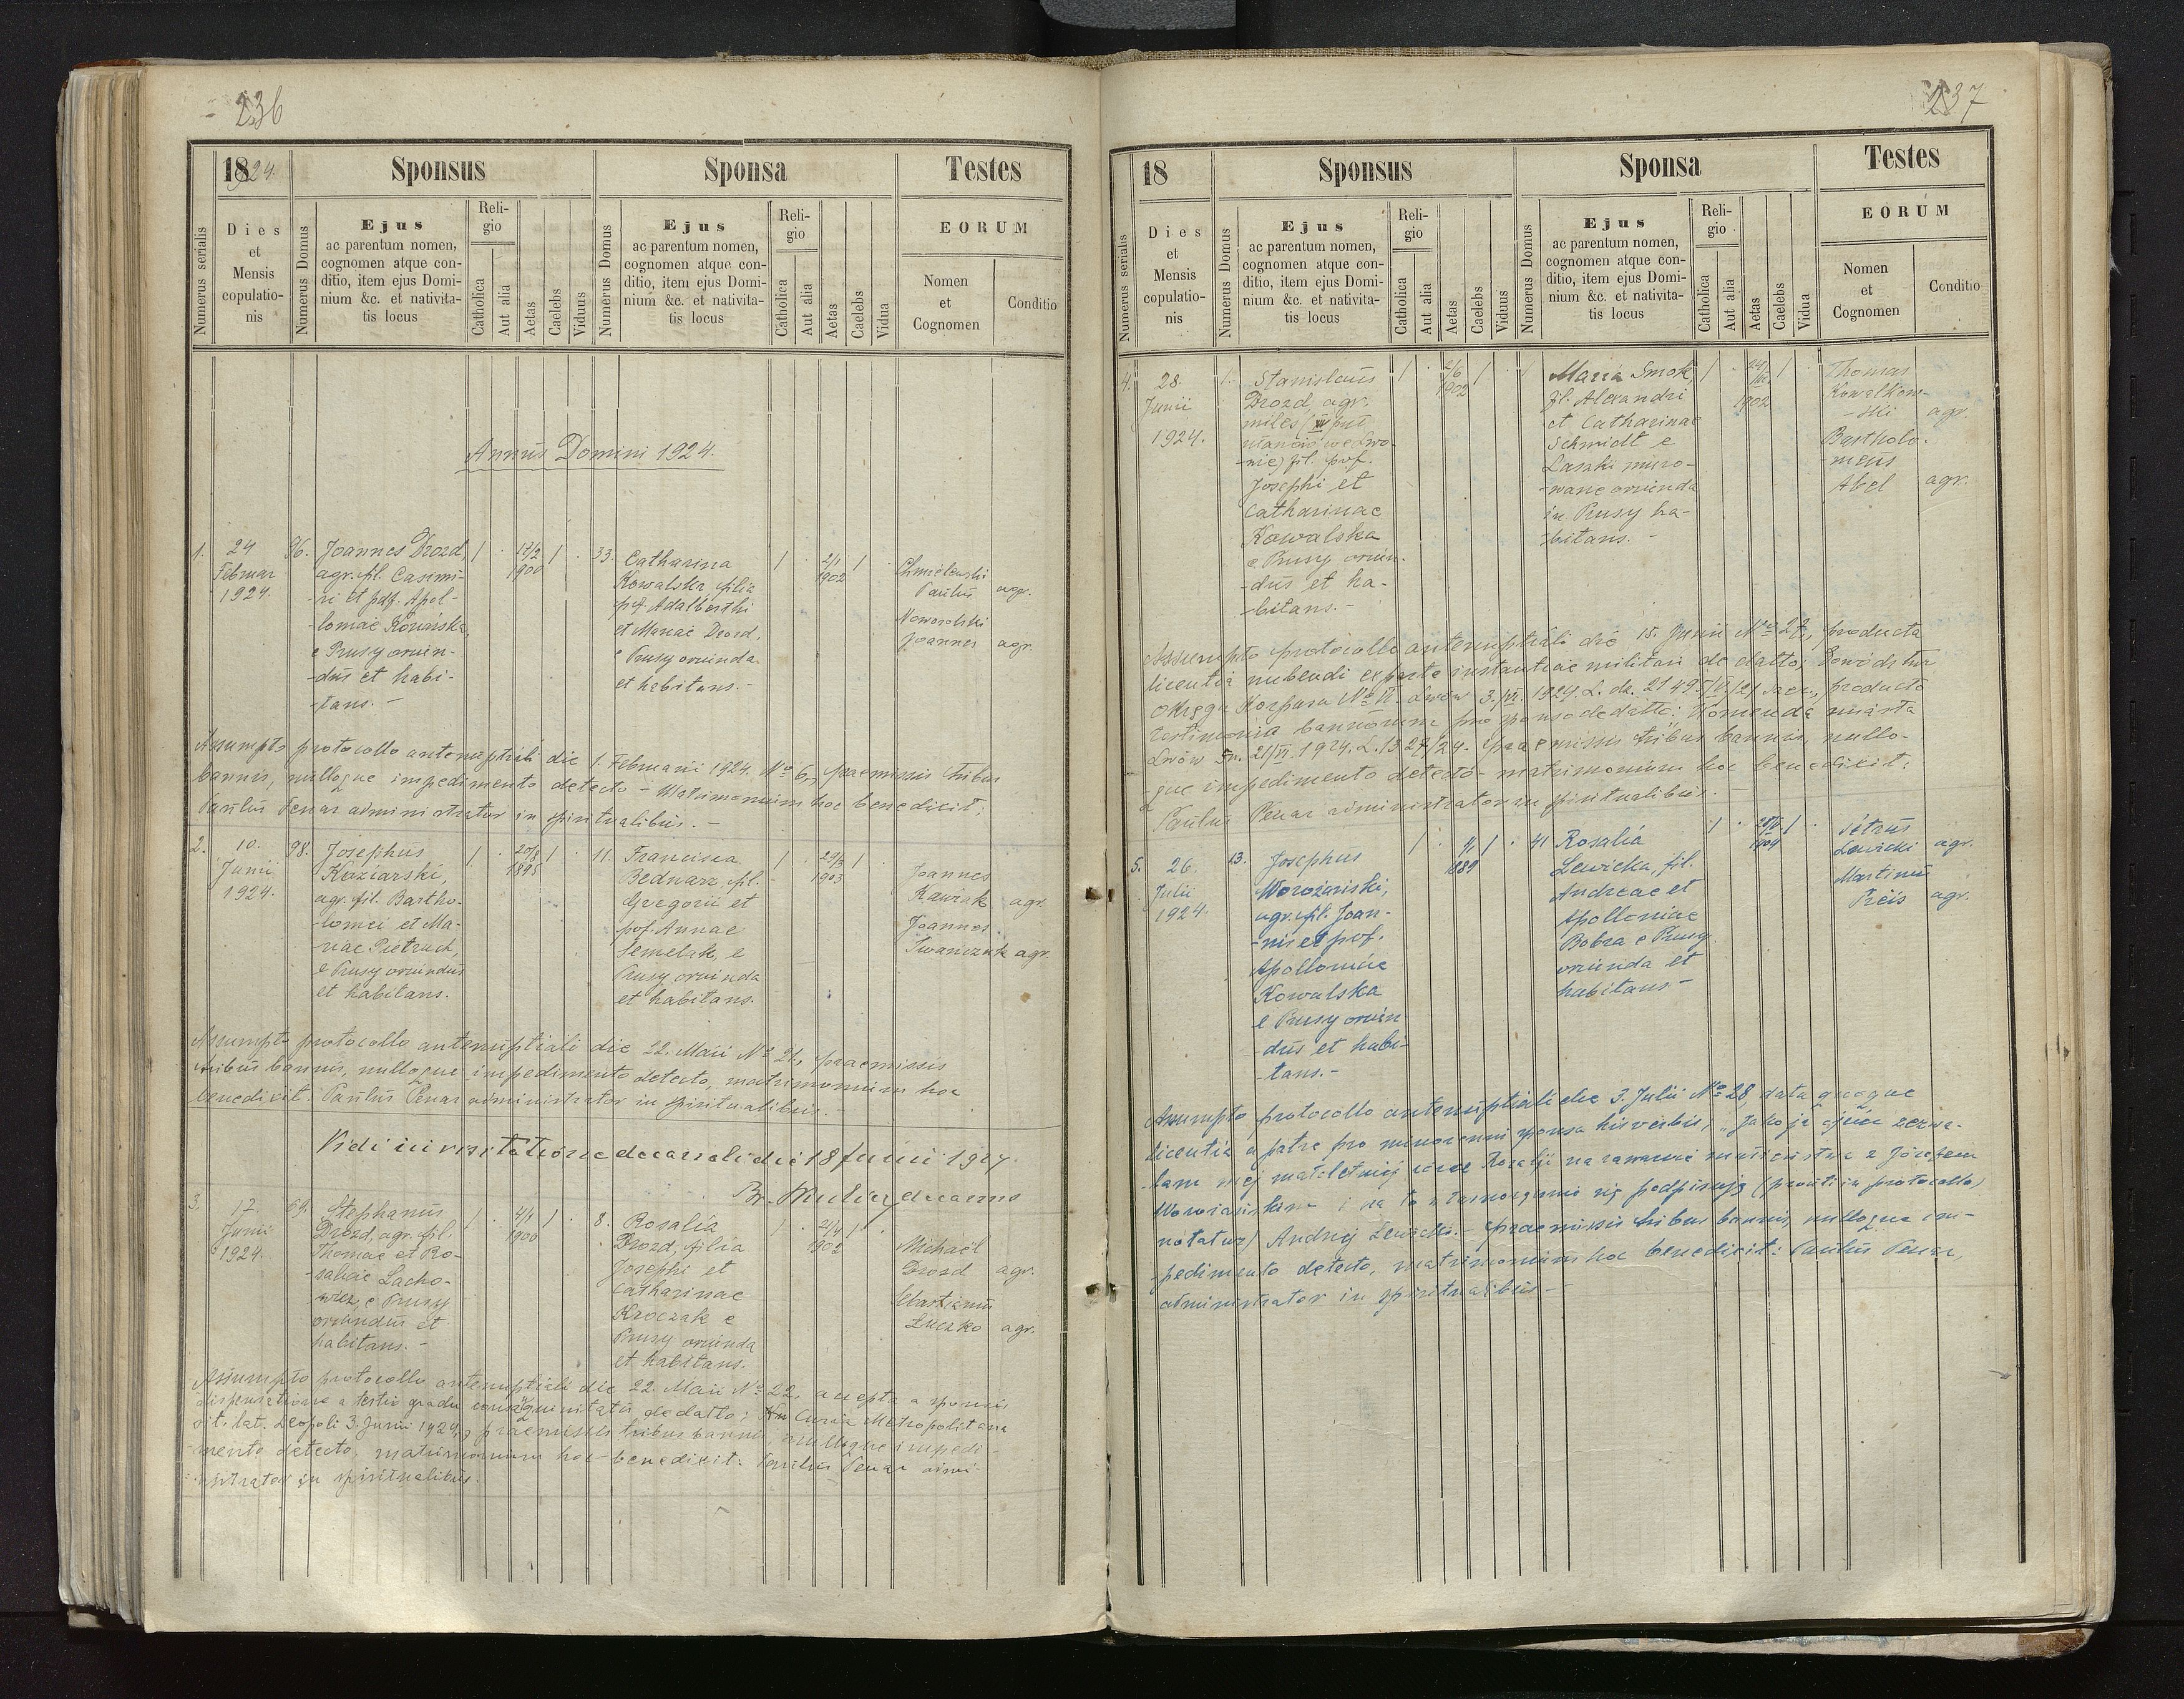 236
1924
Sponsus
Sponsa
Testes
Numerus serialis
Dies
et
Mensis
copulatio-
nis
Numerus Domus
Ejus
ac parentum nomen,
cognomen atque con-
ditio, item ejus Domi-
nium &c. et nativita-
tis locus
Reli-
gio
Catholica
Aut alia
Aetas
Caelebs
Viduus
Numerus Domus
Ejus
ac parentum nomen,
cognomen atque con-
ditio, item ejus Domi-
nium &c. et nativita-
tis locus
Reli-
gio
Catholica
Aut alia
Aetas
Caelebs
Vidua
EORUM
Nomen
et
Cognomen
Conditio
Annus Domini 1924.
1.
24
Februar
1924.
86.
Joannes Drozd,
agr. fil. Casimi-
ri et pdf. Apol-
loniae
e Prusy oriun-
dus et habi-
tans. -
1
17/2
1900
1
33.
Catharina
Kowalska filia
pdf. Adalberthi
et Mariae Drozd,
e Prusy oriunda
et habitans. -
1
2/1
1902
1
Chmielewski
Paulus agr.
Nowosolski
Joannes agr.
Assumpto protocollo antenuptiali die 1. Februarii 1924. No 6., praemissis tribus
bannis, nulloque impedimento detecto - Matrimonium hoc benedixit:
Paulus Penar administrator in spiritualibus. -
2.
10.
Junii
1924.
98.
Josephus
Koziarski,
agr. fil. Bartho-
lomei et Ma-
riae Pietruch,
e Prusy oriundus
et habitans.
1
20/8
1895
1
11.
Francisca
Bednarz, fil.
Gregorii et
pdf. Annae
Semelak, e
Prusy oriunda
et habitans.
1
29/3
1903
1
Joannes
Kawiak agr.
Joannes
Iwanczuk agr.
Assumpto protocollo antenuptiali die 22. Maii No 21., praemissis
tribus bannis, nulloque impedimento detecto, matrimonium hoc
benedixit: Paulus Penar administrator in spiritualibus. -
Vidi in visitatione decanali die 18 Junii 1924.
Br. decanus
3.
17.
Junii
1924.
69.
Stephanus
Drozd, agr. fil.
Thomae et Ro-
saliae Lacho-
wicz, e Prusy
oriundus et
habitans. -
1
4/1
1900
1
8.
Rosalia
Drozd, filia
Josephi et
Catharinae
Kroczak e
Prusy oriunda
et habitans.
1
21/4
1902
1
Michaël
Drozd agr.
Martinus
Łuczko agr.
Assumpto protocollo antenuptiali die 22. Maii No 22, accepta a sponsis
dispensatione a tertio gradu consanguinitatis de datto: Curia Metropolitana
rit. lat. Leopoli 3. Junii 1924, praemissis tribus bannis, nulloque impedi-
mento detecto, matrimonium hoc benedixit: Paulus Penar admi-
nistrator in spiritualibus.
237
18
Sponsus
Sponsa
Testes
Numerus serialis
Dies
et
Mensis
copulatio-
nis
Numerus Domus
Ejus
ac parentum nomen,
cognomen atque con-
ditio, item ejus Domi-
nium &c. et nativita-
tis locus
Reli-
gio
Catholica
Aut alia
Aetas
Caelebs
Viduus
Numerus Domus
Ejus
ac parentum nomen,
cognomen atque con-
ditio, item ejus Domi-
nium &c. et nativita-
tis locus
Reli-
gio
Catholica
Aut alia
Aetas
Caelebs
Vidua
EORUM
Nomen
et
Cognomen
Conditio
4.
28.
Junii
1924.
1.
Stanislaus
Drozd agr.
miles
nie) fil. pdf.
Josephi et
Catharinae
Kowalska
e Prusy oriun-
dus et ha-
bitans. -
1
2/6
1902
1
Maria Smok,
fil. Alexandri
et Catharinae
Schmidt e
Laszki muro-
wane oriunda
in Prusy ha-
bitans. -
1
1902
1
Thomas
Kowalkow-
ski agr.
Bartholo-
meus
Abel agr.
Assumpto protocollo antenuptiali die 15. Junii No 27, producta
licentia nubendi ex parte instantiae militari de datto: Dowództwa
Okręgu Korpusu No VI. Lwów 3./VI. 1924. L. dz. producto
testimonio bannorum pro sponso de datto: Komenda miasta
Lwów 21/VI. 1924. L. 1327/24. praemissis tribus bannis, nullo-
que impedimento detecto - matrimonium hoc benedixit:
Paulus Penar administrator in spiritualibus. -
5.
26.
Julii
1924.
13.
Josephus
agr. fil. Joan-
nis et pdf.
Apolloniae
Kowalska
e Prusy oriun
dus et habi-
tans. -
1
1889
1
41
Rosalia
Lewicka, fil.
Andreae et
Apolloniae
Bobra e Prusy
oriunda et
habitans -
1
1
Petrus
Lewicki agr.
Martinus
Preis agr.
Assumpto protocollo antenuptiali die 3. Julii No 28, data quoque
licentia a patre pro minorenni sponsa his verbis: „Jako jej ojciec zezwa-
lam mej małoletniej córce Rozalji na zawarcie małżeństwa z Józefem
i na to własnoręcznie się podpisuję (prouti in protocollo
notatur) Andrzej Lewicki. - praemissis tribus bannis, nulloque im-
pedimento detecto, matrimonium hoc benedixit: Paulus Penar,
administrator in spiritualibus -